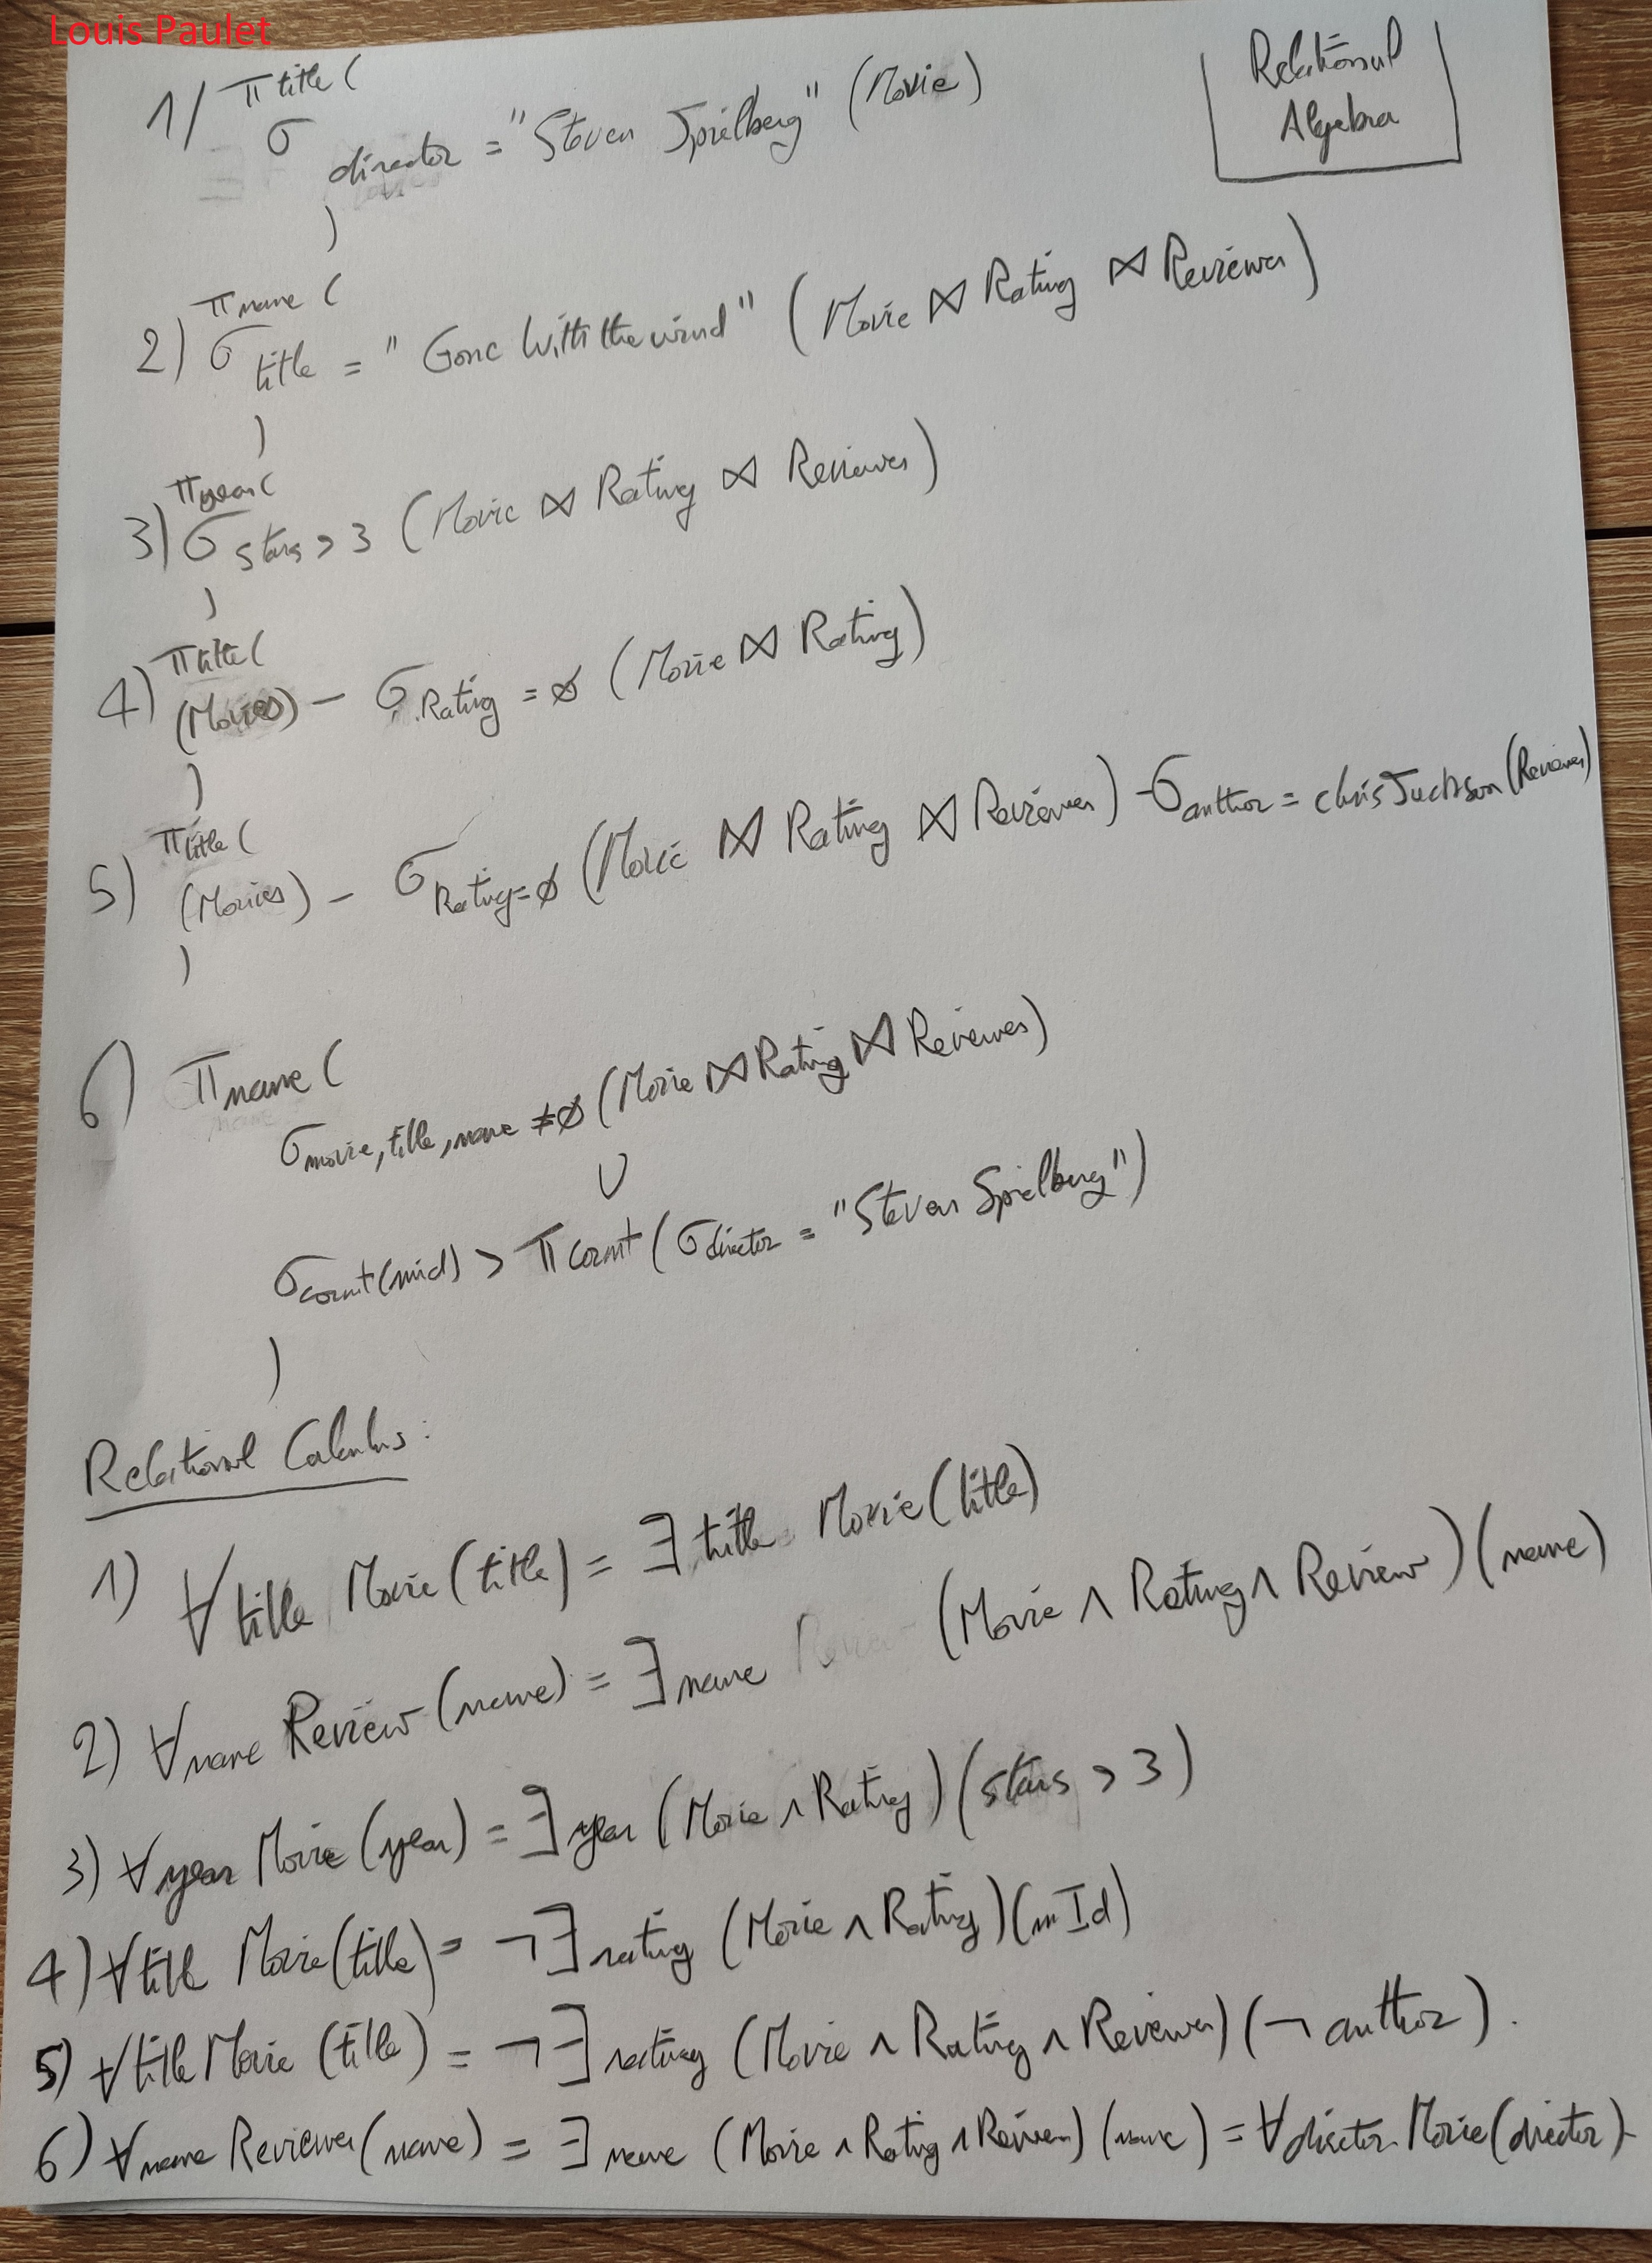 Louis Paulet
Relational
Algebra
1/ π title (
σ director = "Steven Spielberg" (Movie)
)
π name (
2) σ title = "Gone With the wind" (Movie ⋈ Rating ⋈ Reviewer)
)
π year (
3) σ stars > 3 (Movie ⋈ Rating ⋈ Reviewer)
)
π title (
4) (Movies) - σ Rating = ∅ (Movie ⋈ Rating)
)
π title (
5) (Movies) - σ Rating = ∅ (Movie ⋈ Rating ⋈ Reviewer) - σ author = chris Jackson (Reviewer)
)
6) π name (
σ movie, title, name ≠ ∅ (Movie ⋈ Rating ⋈ Reviewer)
∪
σ count(mid) > π count (σ director = "Steven Spielberg")
)
Relational Calculus:
1) ∀ title Movie (title) = ∃ title Movie (title)
2) ∀ name Review (name) = ∃ name (Movie ∧ Rating ∧ Review) (name)
3) ∀ year Movie (year) = ∃ year (Movie ∧ Rating) (stars > 3)
4) ∀ title Movie (title) = ¬ ∃ rating (Movie ∧ Rating) (mId)
5) ∀ title Movie (title) = ¬ ∃ rating (Movie ∧ Rating ∧ Reviewer) (¬ author).
6) ∀ name Reviewer (name) = ∃ name (Movie ∧ Rating ∧ Reviewer) (name) = ∀ director Movie (director)